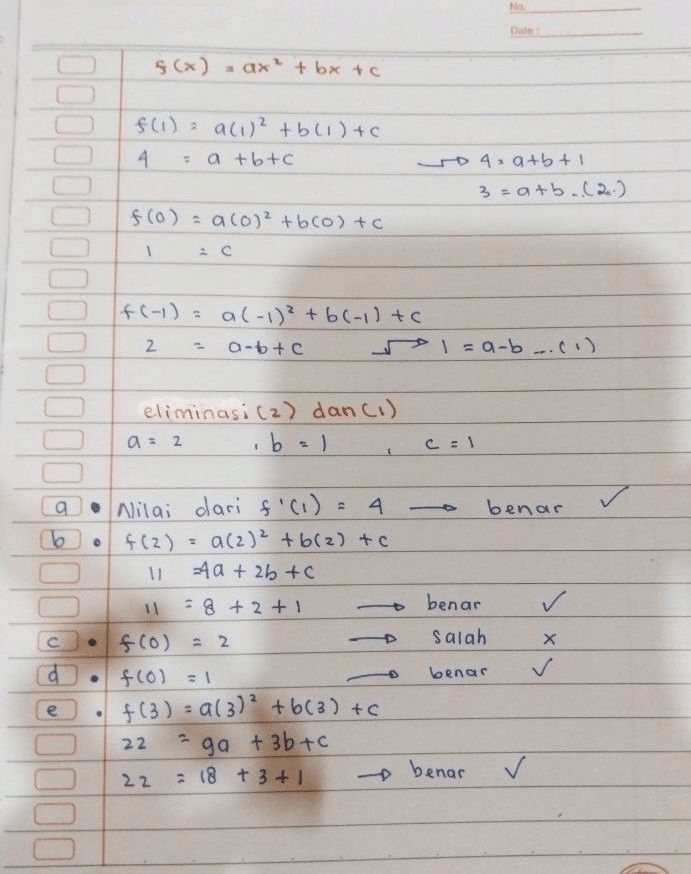 No.
Date :
f(x) = ax² + bx + c
f(1) = a(1)² + b(1) + c
4 = a + b + c → 4 = a + b + 1
3 = a + b ..(2.)
f(0) = a(0)² + b(0) + c
1 = c
f(-1) = a(-1)² + b(-1) + c
2 = a-b + c → 1 = a-b ...(1)
eliminasi (2) dan (1)
a = 2 , b = 1 , c = 1
a • Nilai dari f'(1) = 4 → benar ✓
b • f(2) = a(2)² + b(2) + c
11 = 4a + 2b + c
11 = 8 + 2 + 1 → benar ✓
c • f(0) = 2 → salah x
d • f(0) = 1 → benar ✓
e • f(3) = a(3)² + b(3) + c
22 = 9a + 3b + c
22 = 18 + 3 + 1 → benar ✓